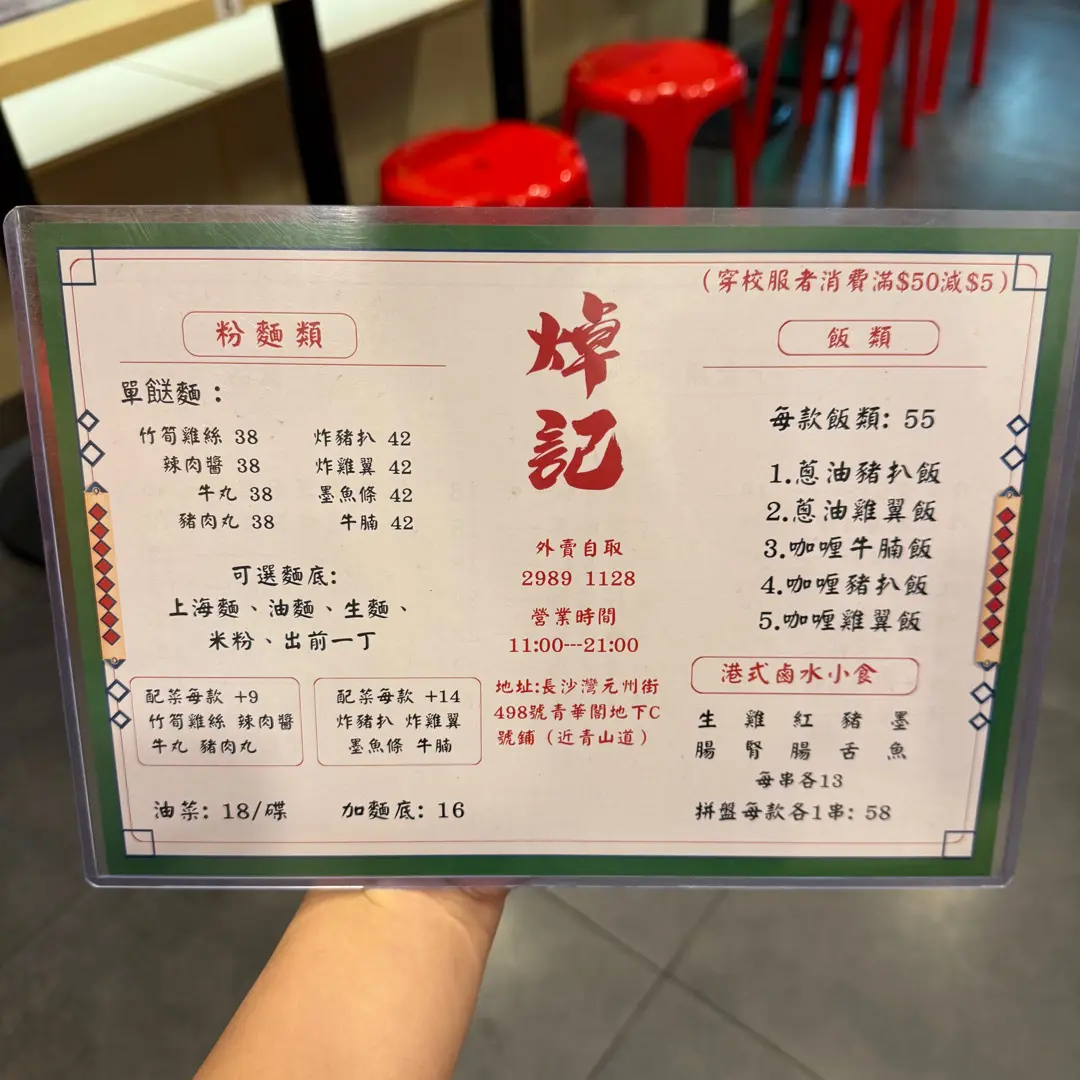 (穿校服者消費滿$50減$5)
焯記
粉麵類
單餸麵：
竹筍雞絲 38 炸豬扒 42
辣肉醬 38 炸雞翼 42
牛丸 38 墨魚條 42
豬肉丸 38 牛腩 42
可選麵底:
上海麵、油麵、生麵、
米粉、出前一丁
配菜每款 +9
竹筍雞絲 辣肉醬
牛丸 豬肉丸
配菜每款 +14
炸豬扒 炸雞翼
墨魚條 牛腩
油菜: 18/碟 加麵底: 16
外賣自取
2989 1128
營業時間
11:00---21:00
地址:長沙灣元州街
498號青華閣地下C
號鋪（近青山道）
飯類
每款飯類: 55
1.蔥油豬扒飯
2.蔥油雞翼飯
3.咖喱牛腩飯
4.咖喱豬扒飯
5.咖喱雞翼飯
港式鹵水小食
生 雞 紅 豬 墨
腸 腎 腸 舌 魚
每串各13
拼盤每款各1串: 58